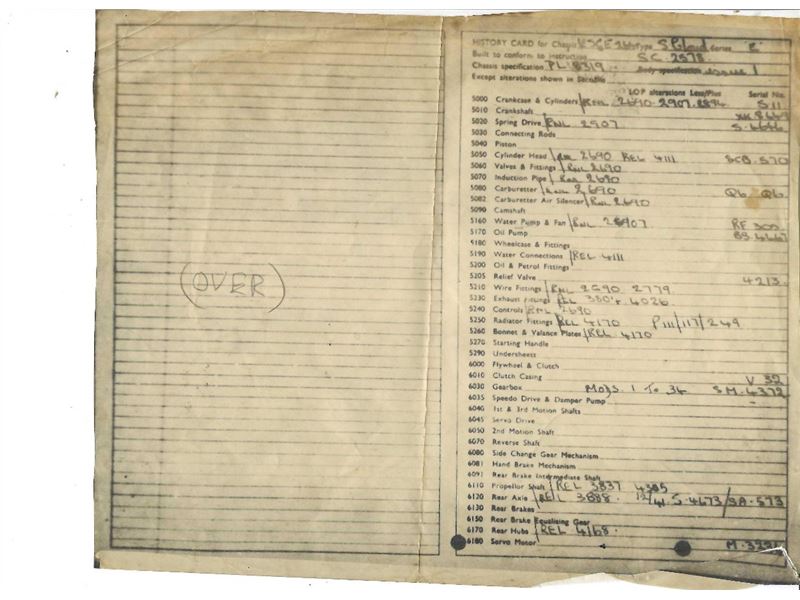 (OVER)
HISTORY CARD for Chassis Type S Cloud Series
Built to conform to instruction S.C. 2578
Chassis specification PL 8319 Body specification issue 1
Except alterations shown in
LOP alterations Less/Plus Serial No.
5000 Crankcase & Cylinders/RNL 2690. 2907. 2894 S 11
5010 Crankshaft
5020 Spring Drive/RNL 2907
5030 Connecting Rods
5040 Piston
5050 Cylinder Head 2690 REL 4111 SCB. 570
5060 Valves & Fittings/RNL 2690
5070 Induction Pipe 2690
5080 Carburetter 2690
5082 Carburetter Air Silencer/RNL 2690
5090 Camshaft
5160 Water Pump & Fan/RNL RF 300
5170 Oil Pump
5180 Wheelcase & Fittings
5190 Water Connections/REL 4111
5200 Oil & Petrol Fittings
5205 Relief Valve 4213
5210 Wire Fittings/RNL 2690 2779
5230 Exhaust Fittings REL 4026
5240 Controls/RNL 2690
5250 Radiator Fittings/REL 4170 P 111/117/249
5260 Bonnet & Valance Plates/REL 4170
5270 Starting Handle
5290 Undersheets
6000 Flywheel & Clutch
6010 Clutch Casing V 32
6030 Gearbox Mods 1 To 34 SM. 4372
6035 Speedo Drive & Damper Pump
6040 1st & 3rd Motion Shafts
6045 Servo Drive
6050 2nd Motion Shaft
6070 Reverse Shaft
6080 Side Change Gear Mechanism
6081 Hand Brake Mechanism
6091 Rear Brake Intermediate Shaft
6110 Propellor Shaft/REL 3837 4385
6120 Rear Axle/REL 3888. 12/41. S. 4673/SA. 573
6130 Rear Brakes
6150 Rear Brake Equalising Gear
6170 Rear Hubs/REL 4168.
6180 Servo Motor